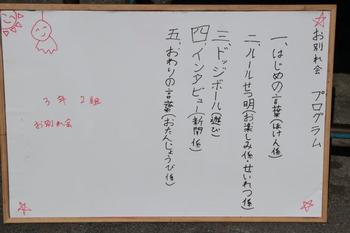 お別れ会 プログラム
一、はじめの言葉(ほけん係)
二、ルールせつ明(お楽しみ係・せいれつ係)
三、ドッジボール(遊び)
四、インタビュー(新聞係)
五、おわりの言葉(おたんじょうび係)
3年2組
お別れ会